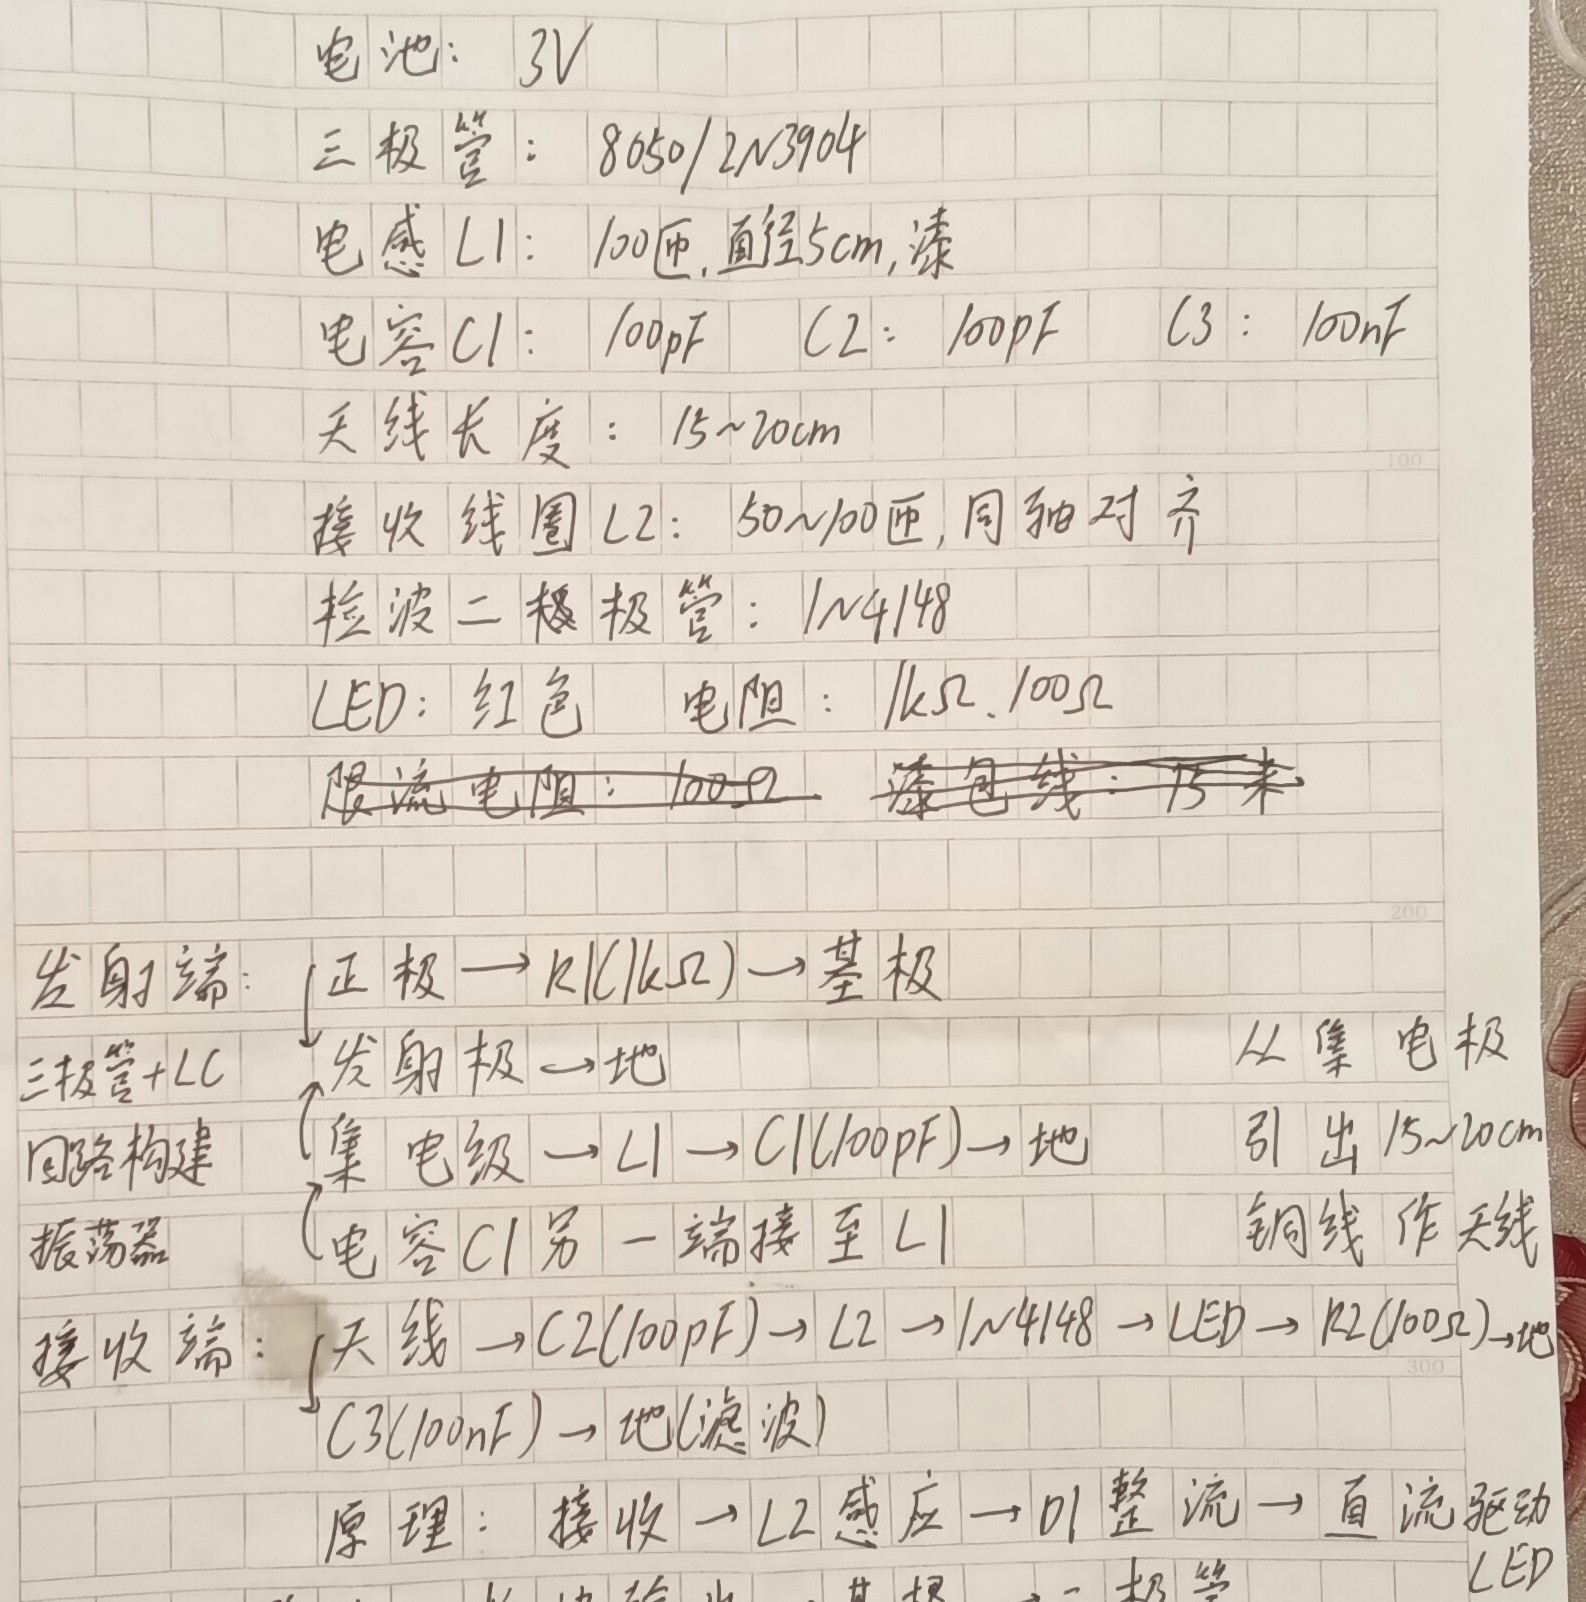 电池: 3V
三极管: 8050/2N3904
电感L1: 100匝,直径5cm,漆
电容C1: 100pF C2: 100pF C3: 100nF
天线长度: 15~20cm
接收线圈L2: 50~100匝,同轴对齐
检波二极极管: 1N4148
LED: 红色 电阻: 1kΩ、100Ω
限流电阻: 100Ω 漆包线: 15米
100
200
发射端: 正极→R1(1kΩ)→基极
三极管+LC 发射极→地 从集电极
回路构建 集电级→L1→C1(100pF)→地 引出15~20cm
振荡器 电容C1另一端接至L1 铜线作天线
接收端: 天线→C2(100pF)→L2→1N4148→LED→R2(100Ω)→地
300
C3(100nF)→地(滤波)
原理: 接收→L2感应→D1整流→直流驱动
LED